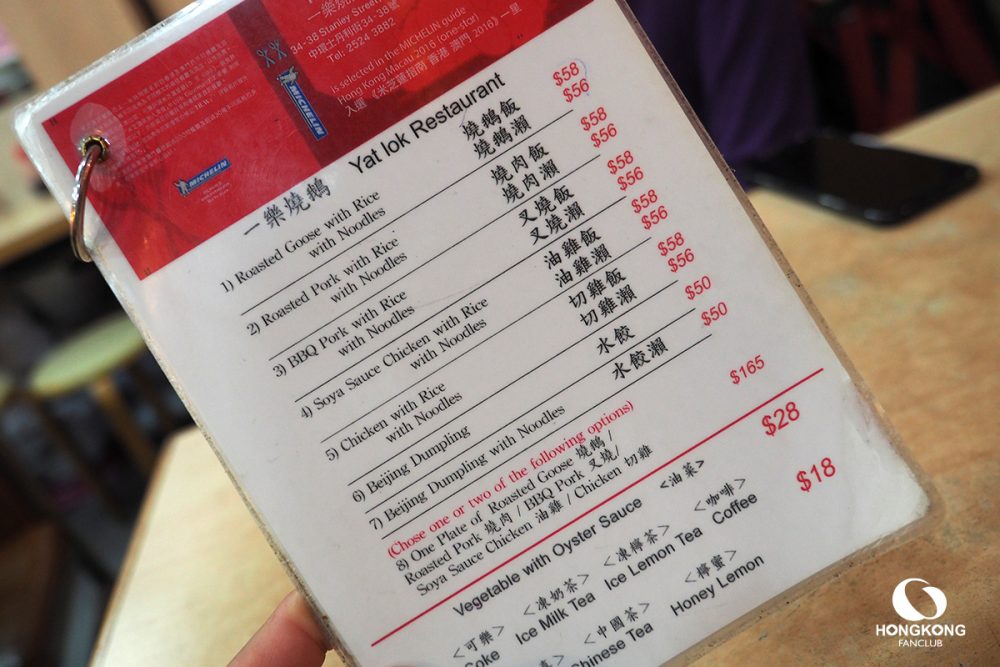 34-38 Stanley Street
中環士丹利街34-38號
Tel: 2524 3882
is selected in the MICHELIN guide
Hong Kong Macau 2016 (one-star)
入選《米芝蓮指南 香港 澳門 2016》一星
MICHELIN
MICHELIN
一樂燒鵝 Yat lok Restaurant
1) Roasted Goose with Rice 燒鵝飯 $58
with Noodles 燒鵝瀨 $56
2) Roasted Pork with Rice 燒肉飯 $58
with Noodles 燒肉瀨 $56
3) BBQ Pork with Rice 叉燒飯 $58
with Noodles 叉燒瀨 $56
4) Soya Sauce Chicken with Rice 油雞飯 $58
with Noodles 油雞瀨 $56
5) Chicken with Rice 切雞飯 $58
with Noodles 切雞瀨 $56
6) Beijing Dumpling 水餃 $50
7) Beijing Dumpling with Noodles 水餃瀨 $50
(Chose one or two of the following options)
8) One Plate of Roasted Goose 燒鵝 / $165
Roasted Pork 燒肉 / BBQ Pork 叉燒 /
Soya Sauce Chicken 油雞 / Chicken 切雞
Vegetable with Oyster Sauce <油菜> $28
<可樂> <凍奶茶> <凍檸茶> <咖啡> $18
Coke Ice Milk Tea Ice Lemon Tea Coffee
<中國茶> <檸蜜>
Chinese Tea Honey Lemon
HONGKONG
FANCLUB